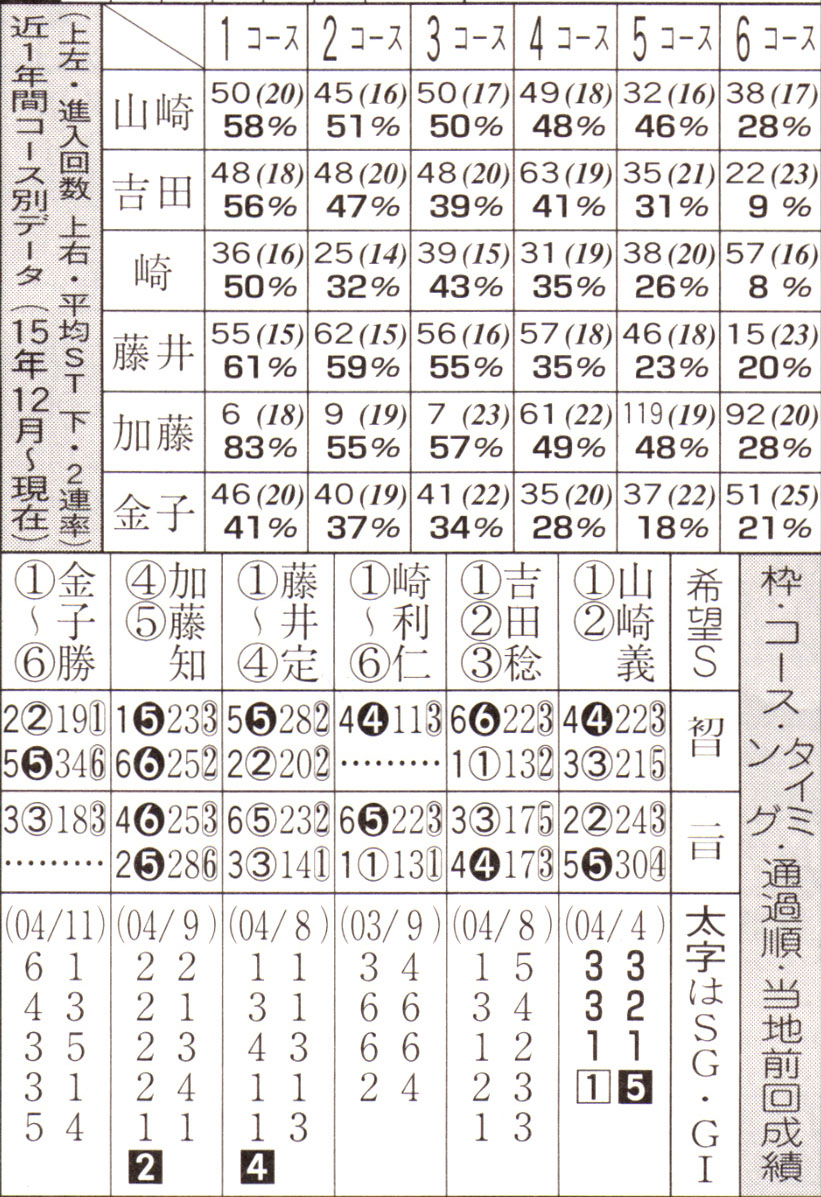 近1年間コース別データ（15年12月～現在）
（上左・進入回数 上右・平均ST 下・2連率）
1コース 2コース 3コース 4コース 5コース 6コース
山崎 50(20) 45(16) 50(17) 49(18) 32(16) 38(17)
58% 51% 50% 48% 46% 28%
吉田 48(18) 48(20) 48(20) 63(19) 35(21) 22(23)
56% 47% 39% 41% 31% 9%
崎 36(16) 25(14) 39(15) 31(19) 38(20) 57(16)
50% 32% 43% 35% 26% 8%
藤井 55(15) 62(15) 56(16) 57(18) 46(18) 15(23)
61% 59% 55% 35% 23% 20%
加藤 6(18) 9(19) 7(23) 61(22) 119(19) 92(20)
83% 55% 57% 49% 48% 28%
金子 46(20) 40(19) 41(22) 35(20) 37(22) 51(25)
41% 37% 34% 28% 18% 21%
枠・コース・タイミング・通過順・当地前回成績
希望S
初日
二日
太字はSG・GI
山崎義
①②
4❹223
3③215
2②243
5❺304
(04/4)
3 3
3 2
1 1
1 5
吉田稔
①②③
6❻223
1①132
3③175
4❹173
(04/8)
1 5
3 4
1 2
2 3
1 3
崎利仁
①～⑥
4❹113
………
6❺223
1①131
(03/9)
3 4
6 6
6 6
2 4
藤井定
①～④
5❺282
2②202
6⑤232
3③141
(04/8)
1 1
3 1
4 3
1 1
1 3
4
加藤知
④⑤
1❺233
6❻252
4❻253
2❺286
(04/9)
2 2
2 1
2 3
2 4
1 1
2
金子勝
①～⑥
2②191
5❺346
3③183
………
(04/11)
6 1
4 3
3 5
3 1
5 4